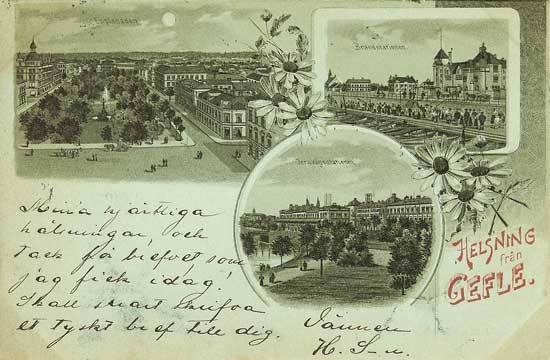 Esplanaden.
Brandstationen.
Jernvägsstationen.
HELSNING
från
GEFLE.
Mina hjärtliga
hälsningar, och
tack för brefvet som
jag fick idag.
Skall snart skrifva
et tyskt bref till dig.
Vännen
H. S-n.